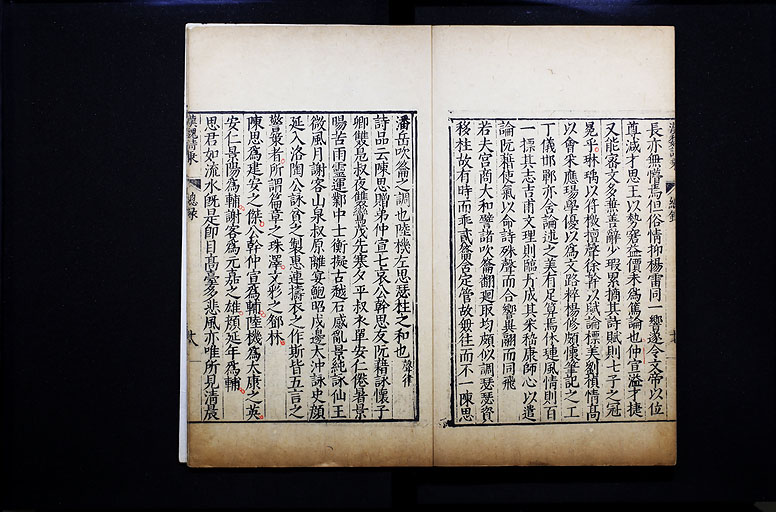 長亦無懵焉但俗情抑揚雷同一響遂令文帝以位
尊減才思王以勢窘益價未為篤論也仲宣溢才捷
又能密文多兼善辭少瑕累摘其詩賦則七子之冠
冕乎琳瑀以符檄擅聲徐幹以賦論標美劉楨情高
以會采應瑒學優以為文路粹楊修頗懷筆記之工
丁儀邯鄲亦含論述之美有足算焉休璉風情則百
一標其志吉甫文理則臨丹成其采嵇康師心以遣
論阮籍使氣以命詩殊聲而合響異翮而同飛
若夫宮商大和譬諸吹籥翻迴取均頗似調瑟瑟資
移柱故有時而乖貳籥含定管故無往而不一陳思
潘岳吹籥之調也陸機左思瑟柱之和也聲律
詩品云陳思贈弟仲宣七哀公幹思友阮籍詠懷子
卿雙鳧叔夜雙鸞茂先寒夕平叔衣單安仁倦暑景
陽苦雨靈運鄴中士衡擬古越石感亂景純詠仙王
微風月謝客山泉叔原離宴鮑昭戍邊太沖詠史顏
延入洛陶公詠貧之製惠連擣衣之作斯皆五言之
警策者所謂篇章之珠澤文彩之鄧林
陳思為建安之傑公幹仲宣為輔陸機為太康之英
安仁景陽為輔謝客為元嘉之雄顏延年為輔
思君如流水既是即目高臺多悲風亦唯所見清晨
總錄